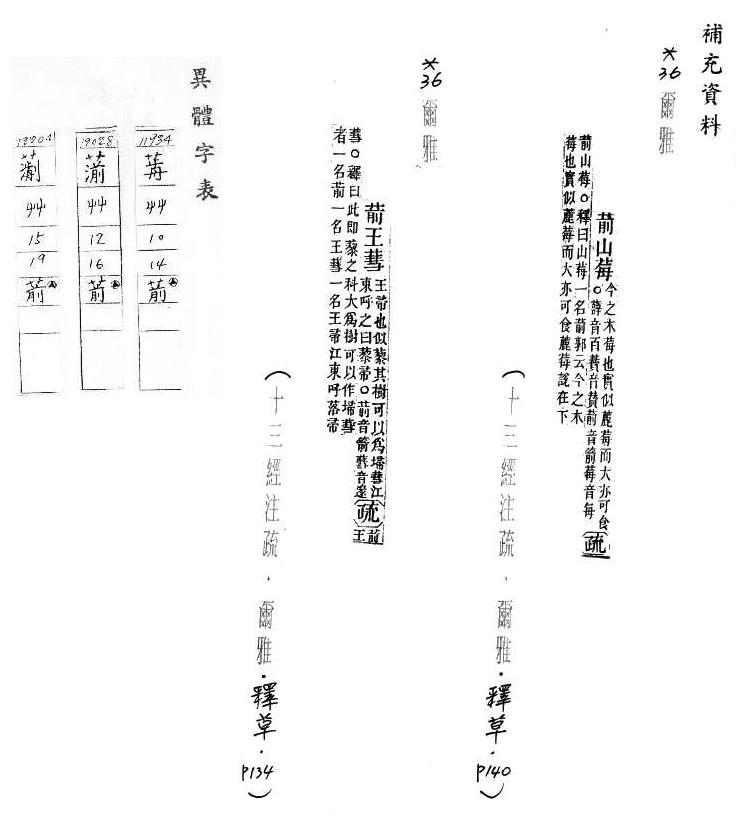 補充資料
*36 爾雅
葥山莓
今之木莓也實似藨莓而大亦可食
○薜音百
音贊葥音箭莓音每
疏
葥山莓○釋曰山莓一名葥郭云今之木
莓也實似藨莓而大亦可食藨莓說在下
(十三經注疏．爾雅．釋草．P140)
*36 爾雅
葥王彗
王帚也似藜其樹可以為埽彗江
東呼之曰藜帚○葥音箭彗音遂
疏
葥
王
彗○釋曰此即藜之科大為樹可以作埽彗
者一名葥一名王彗一名王帚江東呼落帚
(十三經注疏．爾雅．釋草．P134)
異體字表
11934
艸
10
14
葥
19028
艸
12
16
葥
艸
15
19
葥